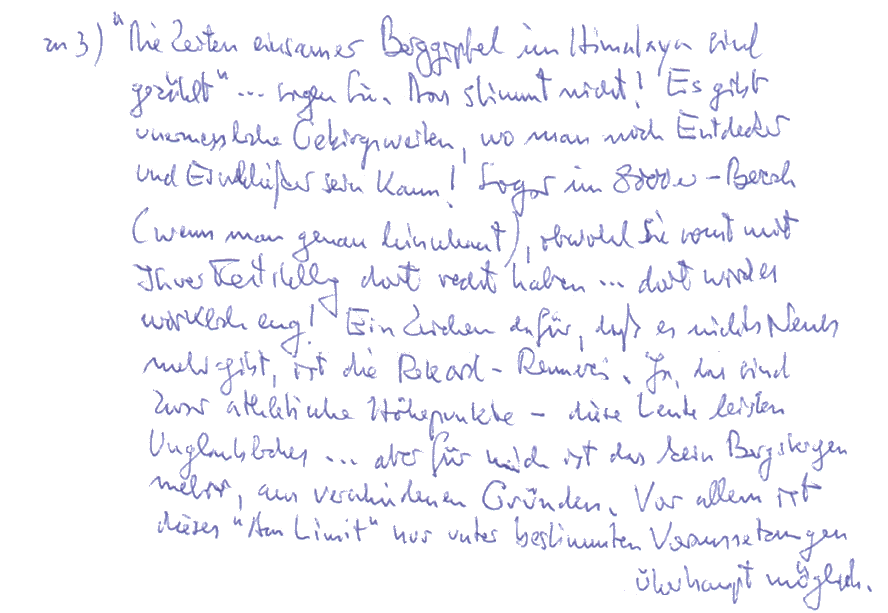 zu 3) "Die Zeiten einsamer Berggipfel im Himalaya sind
gezählt" ... sagen Sie. Das stimmt nicht! Es gibt
unermessliche Gebirgsweiten, wo man noch Entdecker
und Einschlüpfer sein kann! Sogar im 8000er-Bereich
(wenn man genau hinschaut), obwohl Sie sonst mit
Ihrer Feststellung dort recht haben ... dort wird es
wirklich eng! Ein Zeichen dafür, daß es nichts Neues
mehr gibt, ist die Rekord-Rennerei. Ja, das sind
zwar athletische Höhepunkte - diese Leute leisten
Unglaubliches ... aber für mich ist das kein Bergsteigen
mehr, aus verschiedenen Gründen. Vor allem ist
dieses "Am Limit" nur unter bestimmten Voraussetzungen
überhaupt möglich.